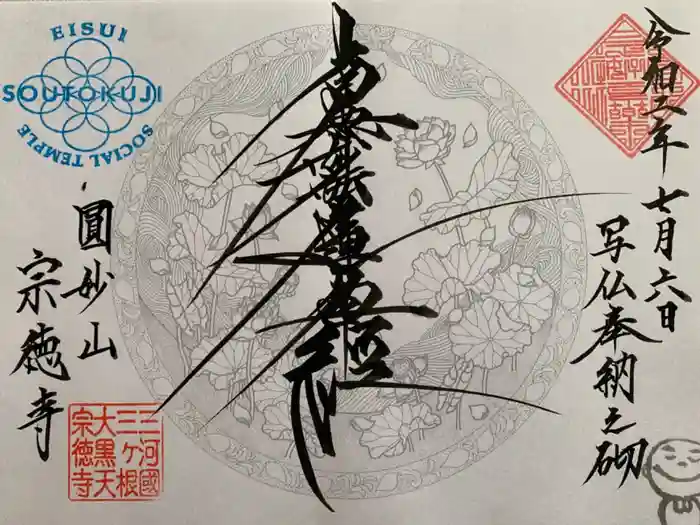 令和二年
七月六日
写仏奉納之砌
南無妙法蓮華経
圓妙山
宗徳寺
EISUI
SOUTOKUJI
SOCIAL TEMPLE
三河國
三ヶ根
大黒天
宗徳寺